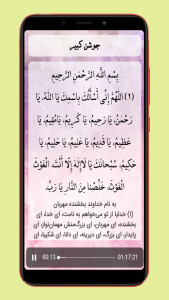 جوشن کبیر
بِسْمِ اللَّهِ الرَّحْمَنِ الرَّحِيمِ
(١) اللَّهُمَّ إِنِّي أَسْأَلُكَ بِاسْمِكَ يَا اللَّهُ، يَا
رَحْمَنُ يَا رَحِيمُ، يَا كَرِيمُ، يَا مُقِيمُ، يَا
عَظِيمُ، يَا قَدِيمُ، يَا عَلِيمُ، يَا حَلِيمُ، يَا
حَكِيمُ، سُبْحَانَكَ يَا لَا إِلَهَ إِلَّا أَنْتَ الْغَوْثَ
الْغَوْثَ، خَلِّصْنَا مِنَ النَّارِ يَا رَبِّ.
به نام خداوند بخشنده مهربان
(۱) خدایا از تو می‌خواهم به نامت، ای خدا، ای
بخشنده، ای مهربان، ای بزرگ‌منش مهمان‌نواز، ای
پایدار، ای بزرگ، ای دیرینه، ای دانا، ای شکیبا، ای
00:13 01:17:21